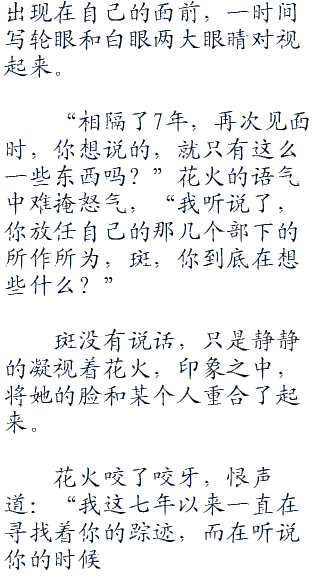 出现在自己的面前，一时间
写轮眼和白眼两大眼睛对视
起来。
“相隔了7年，再次见面
时，你想说的，就只有这么
一些东西吗？”花火的语气
中难掩怒气，“我听说了，
你放任自己的那几个部下的
所作所为，斑，你到底在想
些什么？”
斑没有说话，只是静静
的凝视着花火，印象之中，
将她的脸和某个人重合了起
来。
花火咬了咬牙，恨声
道：“我这七年以来一直在
寻找着你的踪迹，而在听说
你的时候